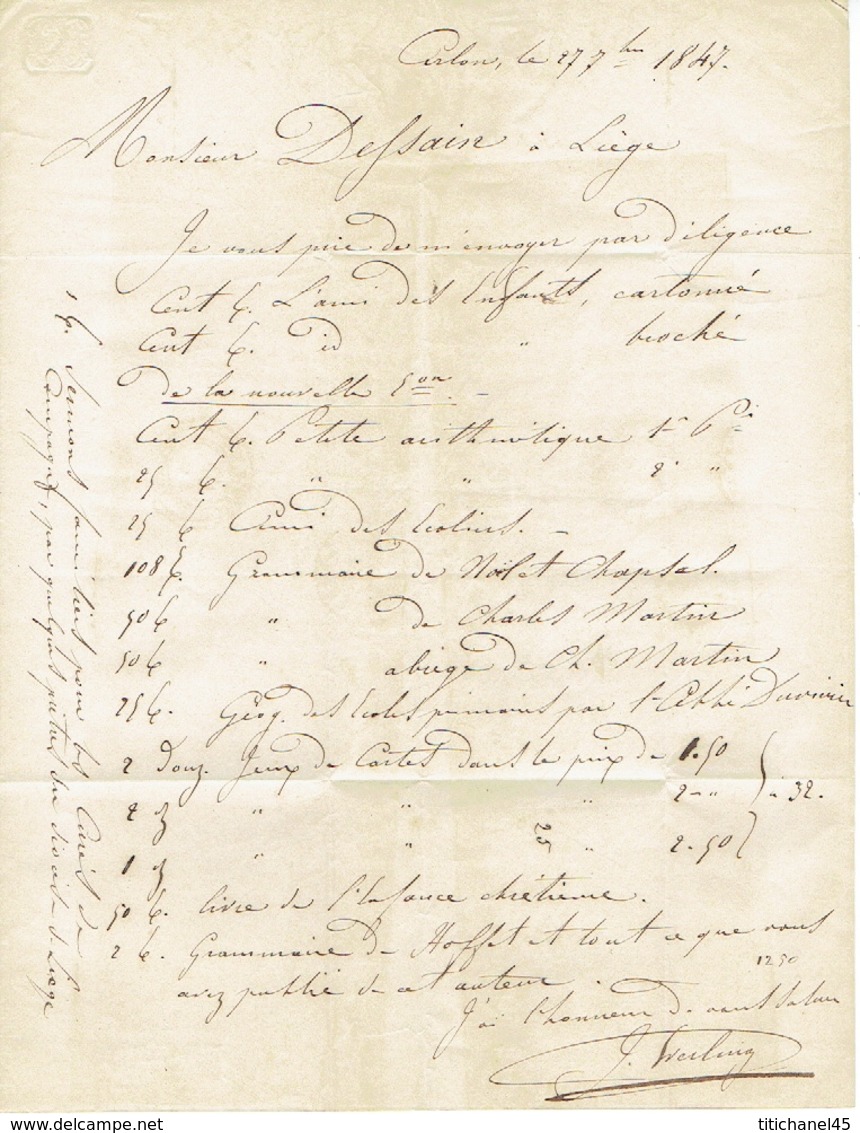 Arlon, le 27 7bre 1847.
Monsieur Dessain à Liège
Je vous prie de m'envoyer par diligence
Cent Ex. L'ami des Enfants, cartonné
Cent Ex. id " broché
De la nouvelle Eon. -
Cent Ex. Petite arithmétique 1re Pie
25 Ex. " " 2e "
25 Ex Ami des Ecoliers. -
108 Ex. Grammaire de Noël et Chapsal.
50 Ex " de Charles Martin
50 Ex " abrégé de Ch. Martin
25 Ex. Géog. des Ecoles primaires par l'Abbé Duvivier
2 Douz. Jeux de Cartes dans le prix de 1.50
2 dz " " " 2 - " à 32.
1 dz " " 25 " 2-50
50 Ex. livre de l'Enfance chrétienne.
2 Ex. Grammaire de Hoffet et tout ce que vous
avez publié de cet auteur.
1250
J'ai l'honneur de vous saluer
J. Werling
1 Ex. Sermons familiers pour les Curés de
Campagne, par quelques prêtres du diocèse de Liège
titichanel45